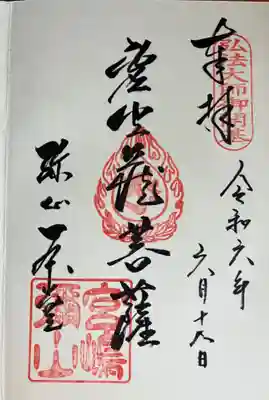 弘法大師御開基
奉拝
令和六年
六月十九日
虚空蔵菩薩
弥山本堂
宮島
彌山